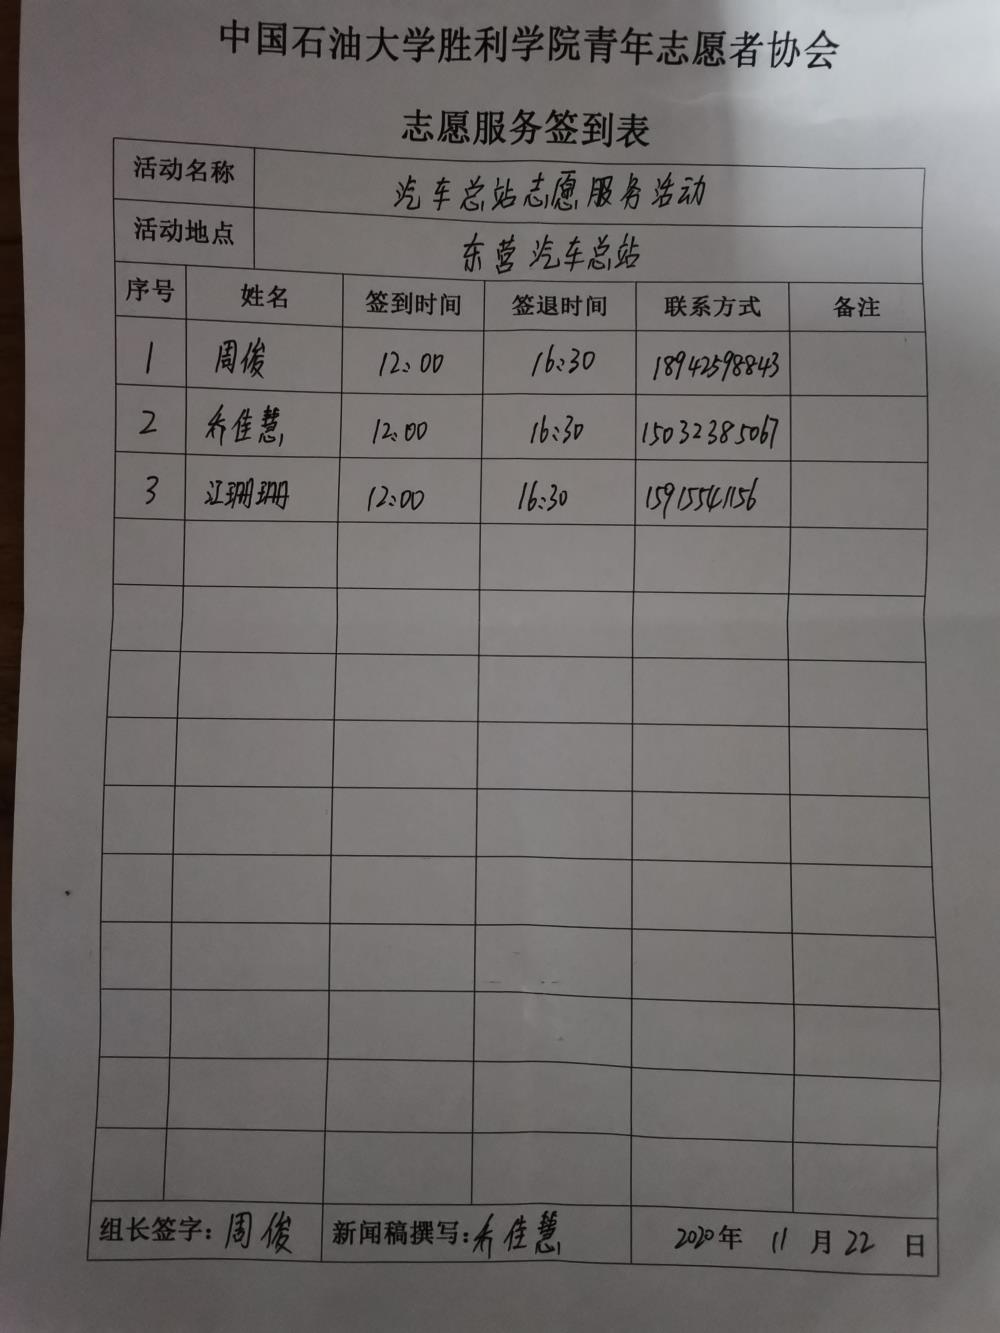 中国石油大学胜利学院青年志愿者协会
志愿服务签到表
活动名称 汽车总站志愿服务活动
活动地点 东营汽车总站
序号 姓名 签到时间 签退时间 联系方式 备注
1 周俊 12:00 16:30 18942598843
2 乔佳慧 12:00 16:30 15032385067
3 江珊珊 12:00 16:30 15915541156
组长签字:周俊 新闻稿撰写:乔佳慧 2020年 11 月 22 日